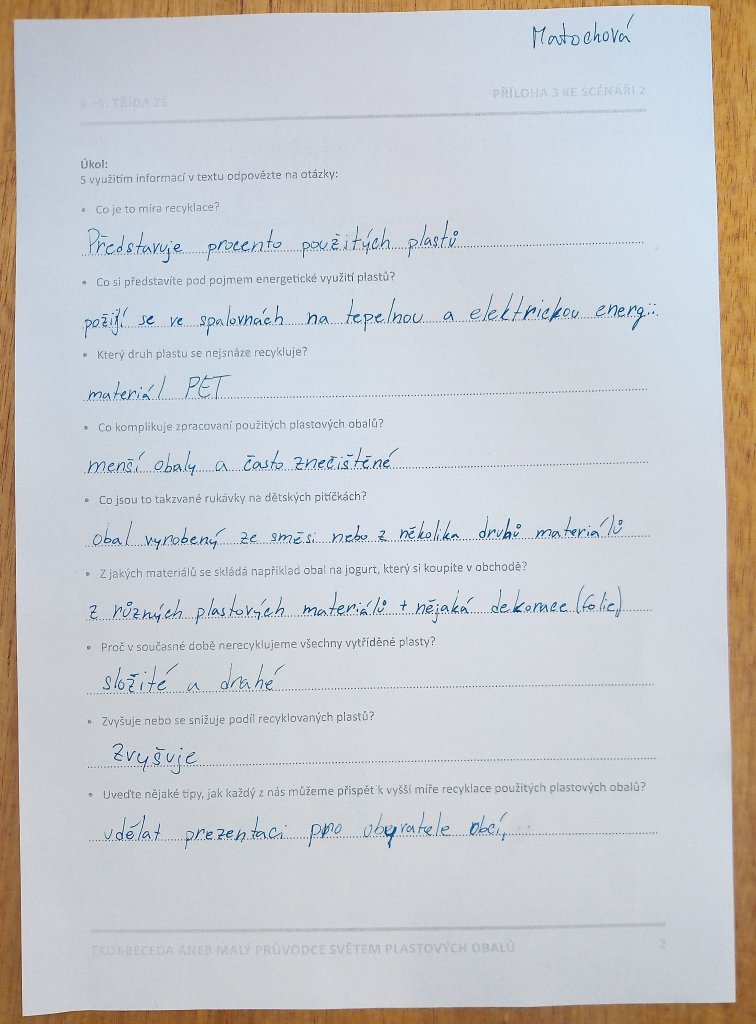 Matochová
8.-9. TŘÍDA ZŠ
PŘÍLOHA 3 KE SCÉNÁŘI 2
Úkol:
S využitím informací v textu odpovězte na otázky:
• Co je to míra recyklace?
Představuje procento použitých plastů
• Co si představíte pod pojmem energetické využití plastů?
požijí se ve spalovnách na tepelnou a elektrickou energii.
• Který druh plastu se nejsnáze recykluje?
materiál PET
• Co komplikuje zpracovaní použitých plastových obalů?
menší obaly a často znečištěné
• Co jsou to takzvané rukávky na dětských pitíčkách?
obal vyrobený ze směsi nebo z několika druhů materiálů
• Z jakých materiálů se skládá například obal na jogurt, který si koupíte v obchodě?
z různých plastových materiálů + nějaká dekorace (folie)
• Proč v současné době nerecyklujeme všechny vytříděné plasty?
složité a drahé
• Zvyšuje nebo se snižuje podíl recyklovaných plastů?
Zvyšuje
• Uveďte nějaké tipy, jak každý z nás můžeme přispět k vyšší míře recyklace použitých plastových obalů?
vdělat prezentaci pro obyvatele obcí,
EKOABECEDA ANEB MALÝ PRŮVODCE SVĚTEM PLASTOVÝCH OBALŮ
2